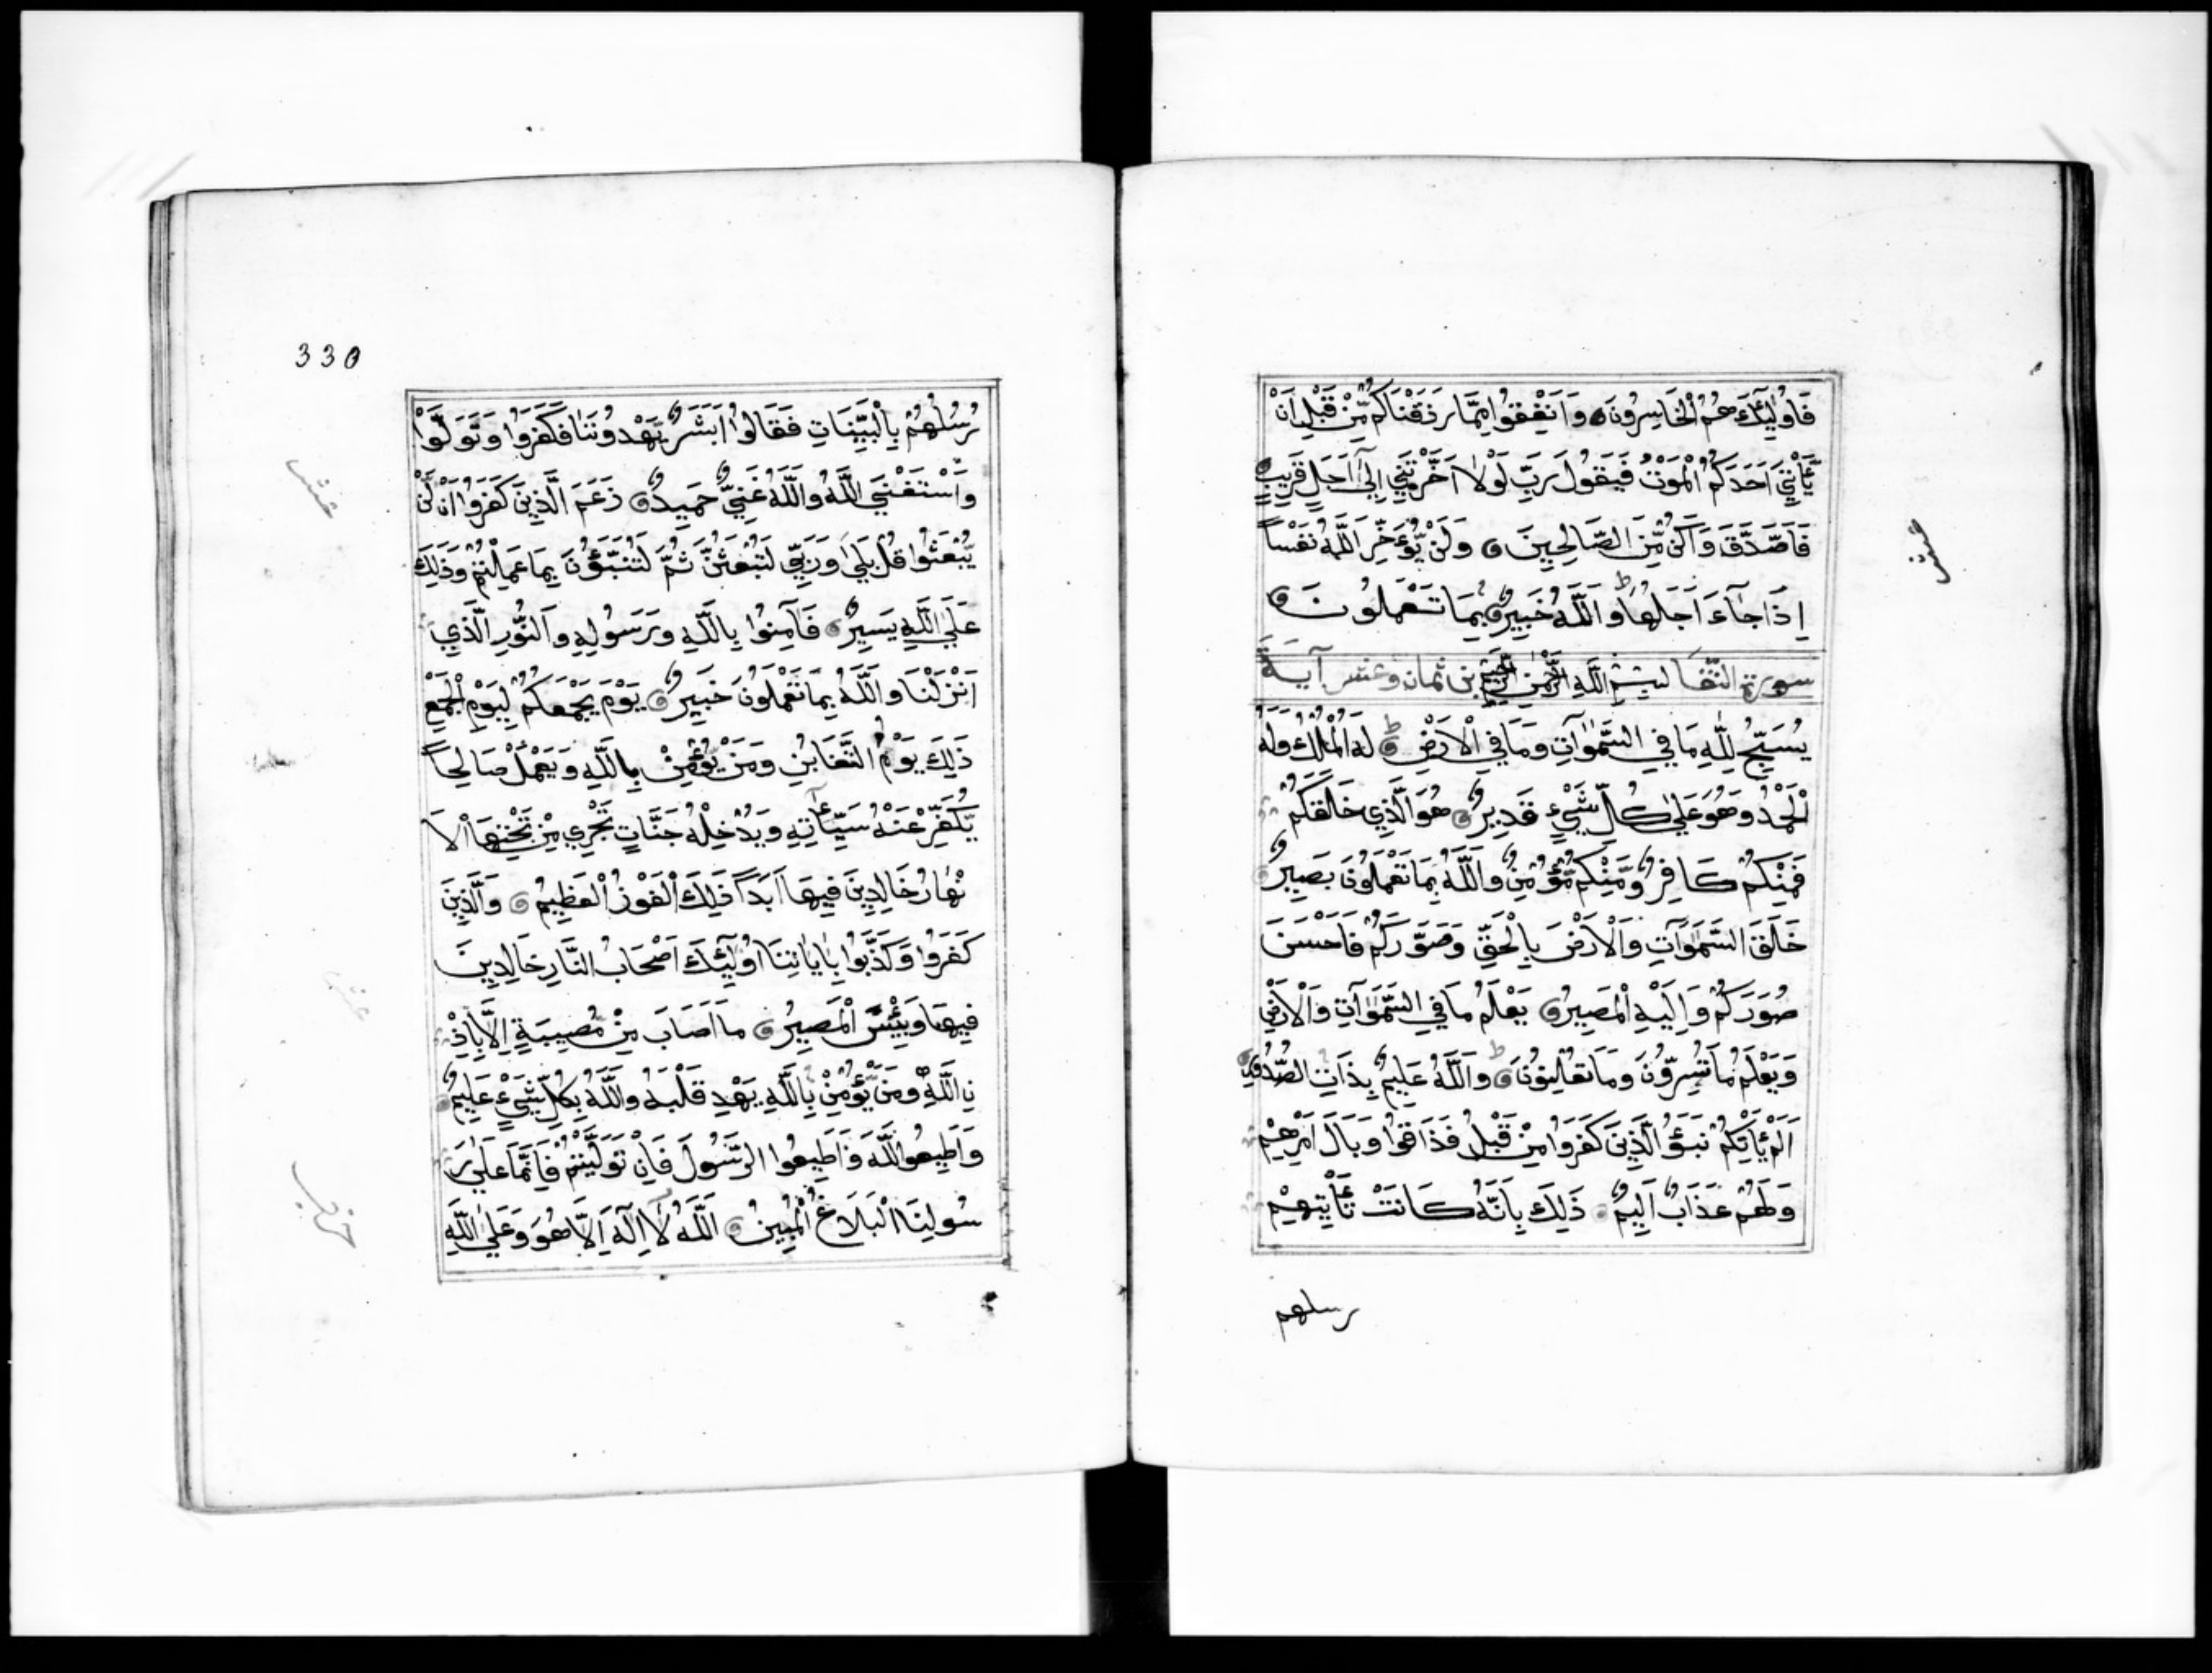 فَاُولٰٓئِكَ هُمُ الْخَاسِرُونَ وَاَنْفِقُوا مِمَّا رَزَقْنَاكُمْ مِّنْ قَبْلِ اَنْ
يَّأْتِيَ اَحَدَكُمُ الْمَوْتُ فَيَقُولَ رَبِّ لَوْلَا اَخَّرْتَنِي اِلٰٓى اَجَلٍ قَرِيبٍ
فَاَصَّدَّقَ وَاَكُنْ مِّنَ الصَّالِحِينَ وَلَنْ يُّؤَخِّرَ اللَّهُ نَفْساً
اِذَا جَآءَ اَجَلُهَا ط وَاللَّهُ خَبِيرٌ بِمَا تَعْمَلُونَ
سورة التغا بِسْمِ اللَّهِ الرَّحْمٰنِ الرَّحِيمِ بن ثمان وعشر آية
يُسَبِّحُ لِلَّهِ مَا فِي السَّمٰوَاتِ وَمَا فِي الْاَرْضِ ط لَهُ الْمُلْكُ وَلَهُ
الْحَمْدُ وَهُوَ عَلٰى كُلِّ شَيْءٍ قَدِيرٌ هُوَ الَّذِي خَلَقَكُمْ
فَمِنْكُمْ كَافِرٌ وَّمِنْكُمْ مُّؤْمِنٌ وَاللَّهُ بِمَا تَعْمَلُونَ بَصِيرٌ
خَلَقَ السَّمٰوَاتِ وَالْاَرْضَ بِالْحَقِّ وَصَوَّرَكُمْ فَاَحْسَنَ
صُوَرَكُمْ وَاِلَيْهِ الْمَصِيرُ يَعْلَمُ مَا فِي السَّمٰوَاتِ وَالْاَرْضِ
وَيَعْلَمُ مَا تُسِرُّونَ وَمَا تُعْلِنُونَ ط وَاللَّهُ عَلِيمٌ بِذَاتِ الصُّدُورِ
اَلَمْ يَأْتِكُمْ نَبَؤُ الَّذِينَ كَفَرُوا مِنْ قَبْلُ فَذَاقُوا وَبَالَ اَمْرِهِمْ
وَلَهُمْ عَذَابٌ اَلِيمٌ ذٰلِكَ بِاَنَّهُ كَانَتْ تَّأْتِيهِمْ
رسلهم
عشر
330
رُسُلُهُمْ بِالْبَيِّنَاتِ فَقَالُوا اَبَشَرٌ يَّهْدُونَنَا فَكَفَرُوا وَتَوَلَّوْا
وَاسْتَغْنَى اللَّهُ وَاللَّهُ غَنِيٌّ حَمِيدٌ زَعَمَ الَّذِينَ كَفَرُوا اَنْ لَّنْ
يُّبْعَثُوا قُلْ بَلٰى وَرَبِّي لَتُبْعَثُنَّ ثُمَّ لَتُنَبَّؤُنَّ بِمَا عَمِلْتُمْ وَذٰلِكَ
عَلَى اللَّهِ يَسِيرٌ فَاٰمِنُوا بِاللَّهِ وَرَسُولِهِ وَالنُّورِ الَّذِي
اَنْزَلْنَا وَاللَّهُ بِمَا تَعْمَلُونَ خَبِيرٌ يَوْمَ يَجْمَعُكُمْ لِيَوْمِ الْجَمْعِ
ذٰلِكَ يَوْمُ التَّغَابُنِ وَمَنْ يُّؤْمِنْ بِاللَّهِ وَيَعْمَلْ صَالِحاً
يُّكَفِّرْ عَنْهُ سَيِّاٰتِهِ وَيُدْخِلْهُ جَنَّاتٍ تَجْرِي مِنْ تَحْتِهَا الْاَ
نْهَارُ خَالِدِينَ فِيهَا اَبَداً ذٰلِكَ الْفَوْزُ الْعَظِيمُ وَالَّذِينَ
كَفَرُوا وَكَذَّبُوا بِاٰيَاتِنَا اُولٰٓئِكَ اَصْحَابُ النَّارِ خَالِدِينَ
فِيهَا وَبِئْسَ الْمَصِيرُ مَا اَصَابَ مِنْ مُّصِيبَةٍ اِلَّا بِاِذْ
نِ اللَّهِ وَمَنْ يُّؤْمِنْ بِاللَّهِ يَهْدِ قَلْبَهُ وَاللَّهُ بِكُلِّ شَيْءٍ عَلِيمٌ
وَاَطِيعُوا اللَّهَ وَاَطِيعُوا الرَّسُولَ فَاِنْ تَوَلَّيْتُمْ فَاِنَّمَا عَلٰى رَ
سُولِنَا الْبَلَاغُ الْمُبِينُ اَللَّهُ لَا اِلٰهَ اِلَّا هُوَ وَعَلَى اللَّهِ
عشر
عشر
حزب